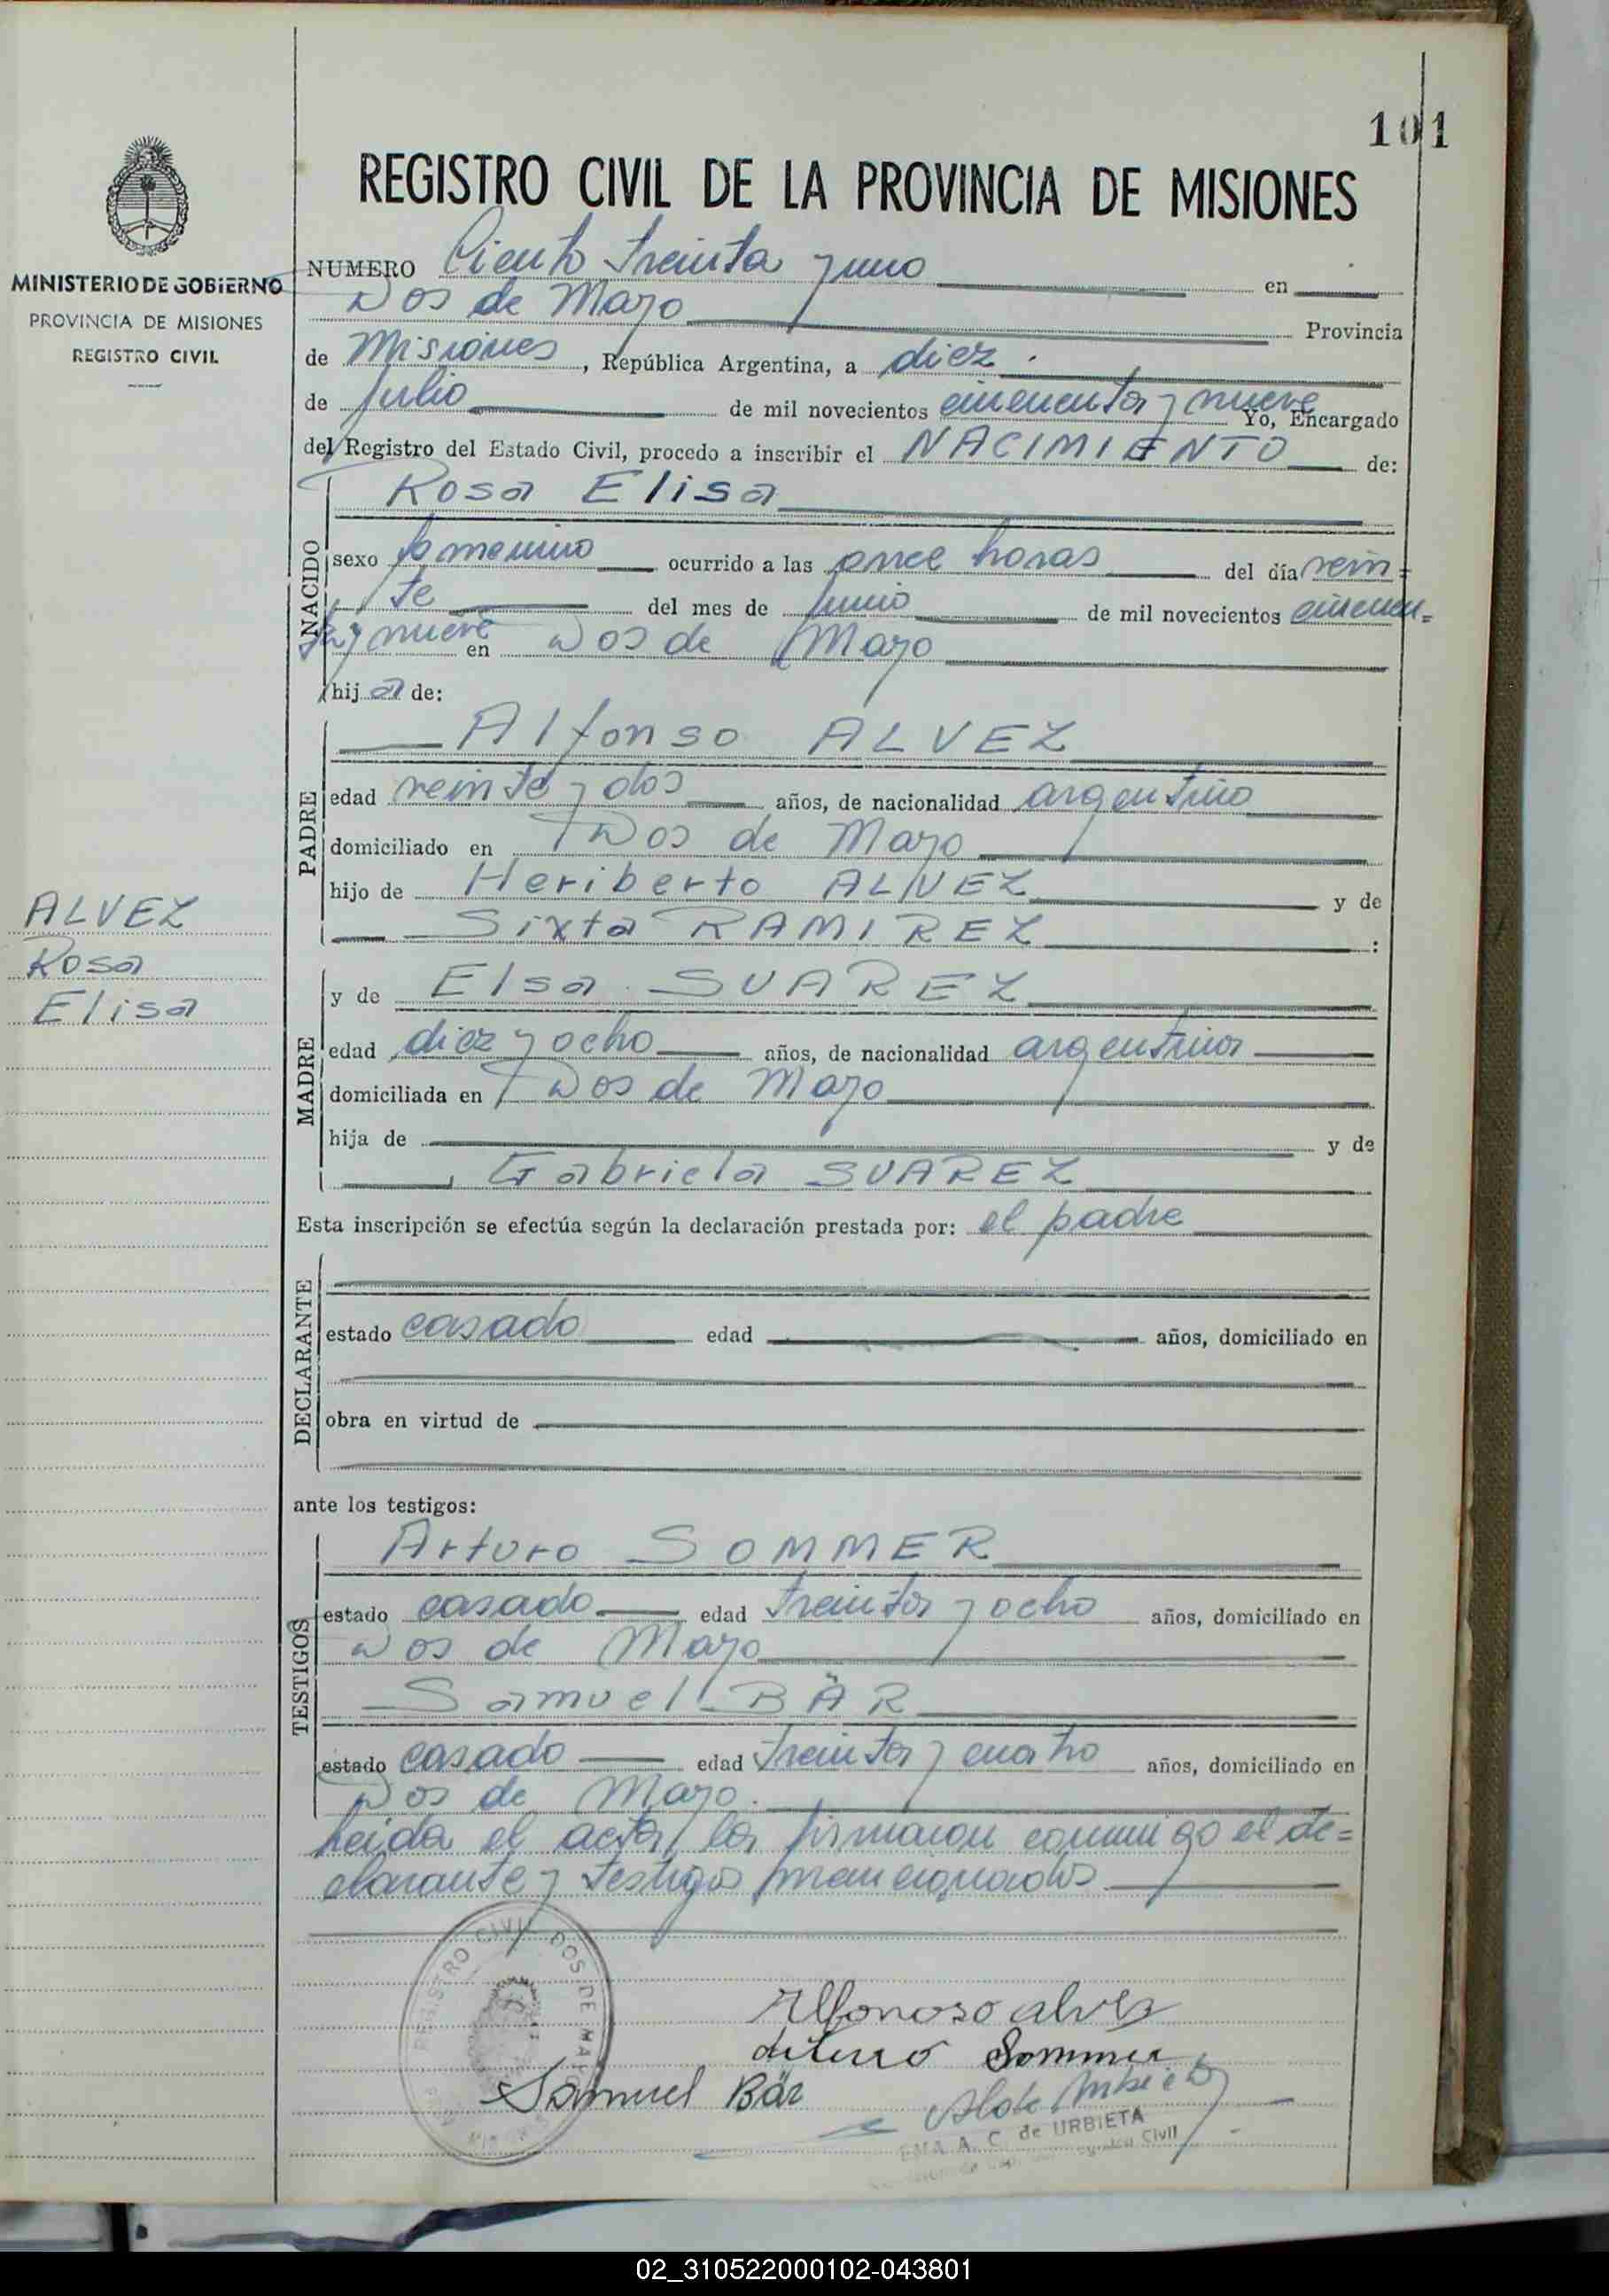 101
REGISTRO CIVIL DE LA PROVINCIA DE MISIONES
MINISTERIO DE GOBIERNO
PROVINCIA DE MISIONES
REGISTRO CIVIL
NUMERO Ciento treinta y uno en
Dos de Mayo Provincia
de Misiones, República Argentina, a diez
de Julio de mil novecientos cincuenta y nueve Yo, Encargado
del Registro del Estado Civil, procedo a inscribir el NACIMIENTO de:
Rosa Elisa
ANACIDO
sexo femenino ocurrido a las once horas del día vein=
te del mes de Junio de mil novecientos cincuen=
ta y nueve en Dos de Mayo
hija de:
PADRE
Alfonso ALVEZ
edad veinte y dos años, de nacionalidad argentino
domiciliado en Dos de Mayo
hijo de Heriberto ALVEZ y de
Sixta RAMIREZ :
ALVEZ
Rosa
Elisa
MADRE
y de Elsa SUAREZ
edad diez y ocho años, de nacionalidad argentina
domiciliada en Dos de Mayo
hija de y de
Gabriela SUAREZ
Esta inscripción se efectúa según la declaración prestada por: el padre
DECLARANTE
estado casado edad años, domiciliado en
obra en virtud de
ante los testigos:
TESTIGOS
Arturo SOMMER
estado casado edad treinta y ocho años, domiciliado en
Dos de Mayo
Samuel BÄR
estado casado edad treinta y cuatro años, domiciliado en
Dos de Mayo.
Leida el acta, la firmaron conmigo el de=
clarante y testigos mencionados
REGISTRO CIVIL DOS DE MAYO
Alfonoso alvez
Arturo Sommer
Samuel Bär
EMA A. C. de URBIETA
Civil
02_310522000102-043801